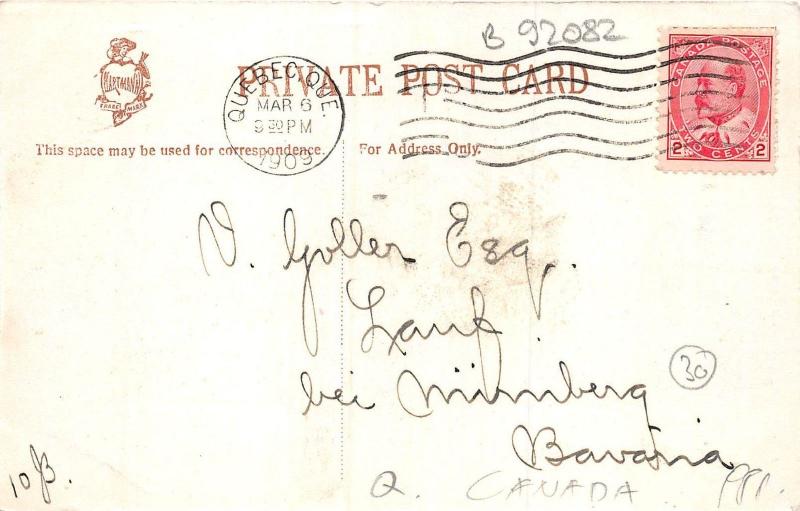 B 92082
HARTMANN
TRADE MARK
PRIVATE POST CARD
QUEBEC, QUE.
MAR 6
9 30 PM
1909
CANADA POSTAGE
2 TWO CENTS 2
This space may be used for correspondence.
For Address Only.
V. Goller Esq.
Lauf
bei Nürnberg
Bavaria
30
10 B.
Q. CANADA